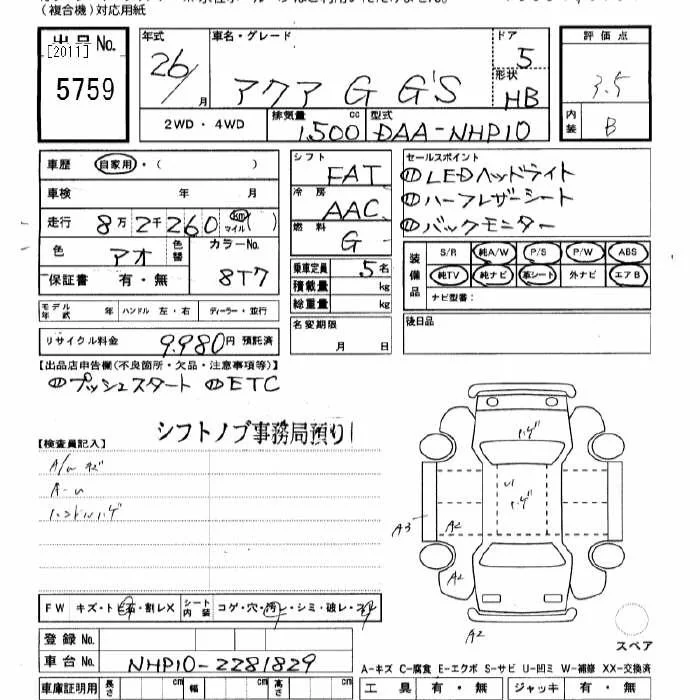 (複合機)対応用紙
出品No.
[2011]
5759
年式
26/
月
車名・グレード
アクア G G'S
ドア
5
形状
HB
評価点
3.5
内装
B
2WD・4WD
排気量
1,500
cc
型式
DAA-NHP10
車歴
自家用・( )
車検 年 月
走行 8万2千260 km マイル ( )
色 アオ 色替
カラーNo.
8T7
保証書 有・無
モデル年式 年
ハンドル 左・右
ディーラー・並行
リサイクル料金 9,980円 預託済
シフト
FAT
冷房
AAC
燃料
G
乗車定員 5名
積載量 kg
総重量 kg
名変期限
月 日
セールスポイント
① LEDヘッドライト
① ハーフレザーシート
① バックモニター
装備品
S/R 純A/W P/S P/W ABS
純TV 純ナビ 革シート 外ナビ エアB
ナビ型番:
後日品
【出品店申告欄(不良箇所・欠品・注意事項等)】
プッシュスタート ETC
シフトノブ事務局預り1
【検査員記入】
A/w キズ
A-u
ハンドルハゲ
ハゲ
U1
ハゲ
A3
A2
A2
A2
FW キズ・ト石・割レX
シート内装 コゲ・穴・汚レ・シミ・破レ・スレ
登録No.
車台No.
NHP10-2281829
スペア
A-キズ C-腐食 E-エクボ S-サビ U-凹ミ W-補修 XX-交換済
車庫証明用 長さ cm 幅 cm 高さ cm
工具 有・無 ジャッキ 有・無